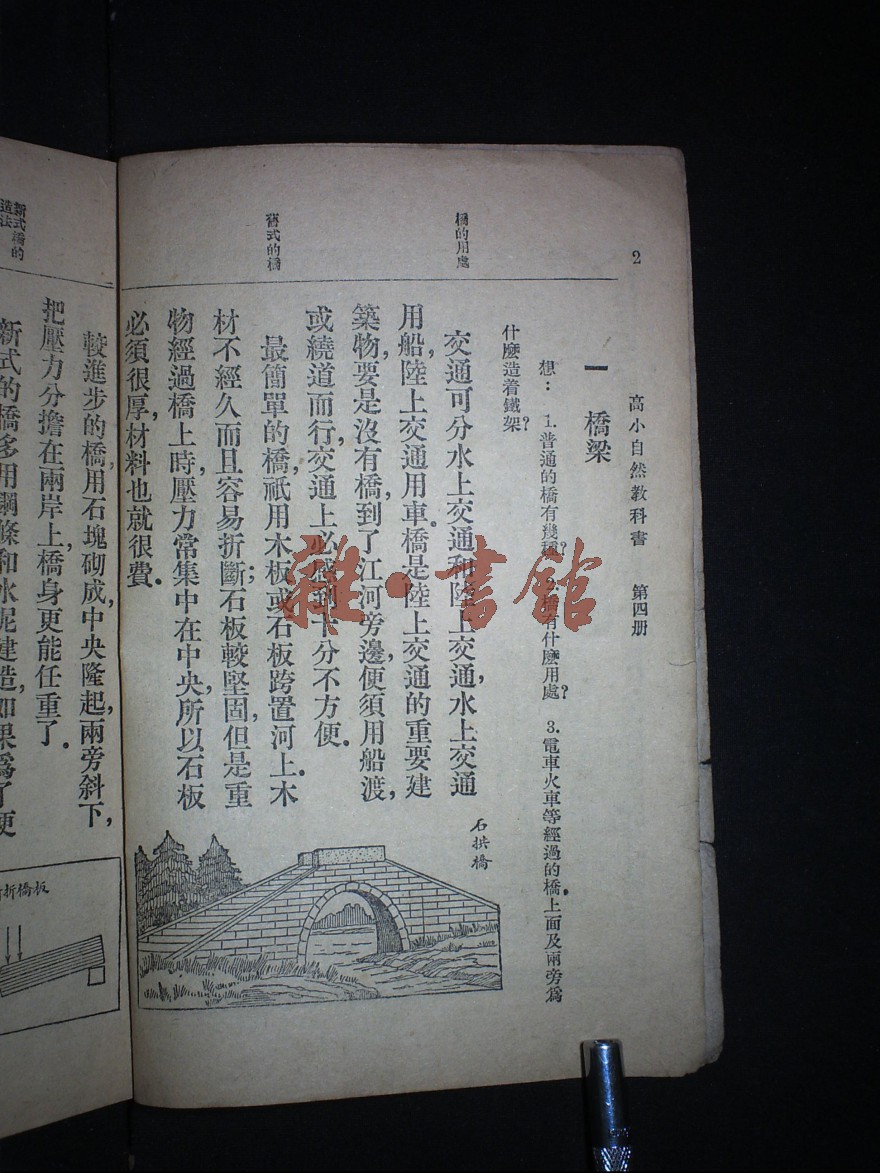 2
高小自然教科書　第四册
一　橋梁
想：1.普通的橋有幾種？2.橋有什麼用處？3.電車火車等經過的橋，上面及兩旁爲
什麼造着鐵架？
橋的用處
交通可分水上交通和陸上交通，水上交通
用船，陸上交通用車。橋是陸上交通的重要建
築物，要是沒有橋，到了江河旁邊，便須用船渡，
或繞道而行，交通上必感到十分不方便。
舊式的橋
最簡單的橋，祇用木板或石板跨置河上。木
材不經久而且容易折斷；石板較堅固，但是重
物經過橋上時，壓力常集中在中央，所以石板
必須很厚，材料也就很費。
石拱橋
雜·書館
較進步的橋，用石塊砌成，中央隆起，兩旁斜下，
把壓力分擔在兩岸上，橋身更能任重了。
新式橋的
造法
新式的橋多用鋼條和水泥建造，如果爲了更
折橋板